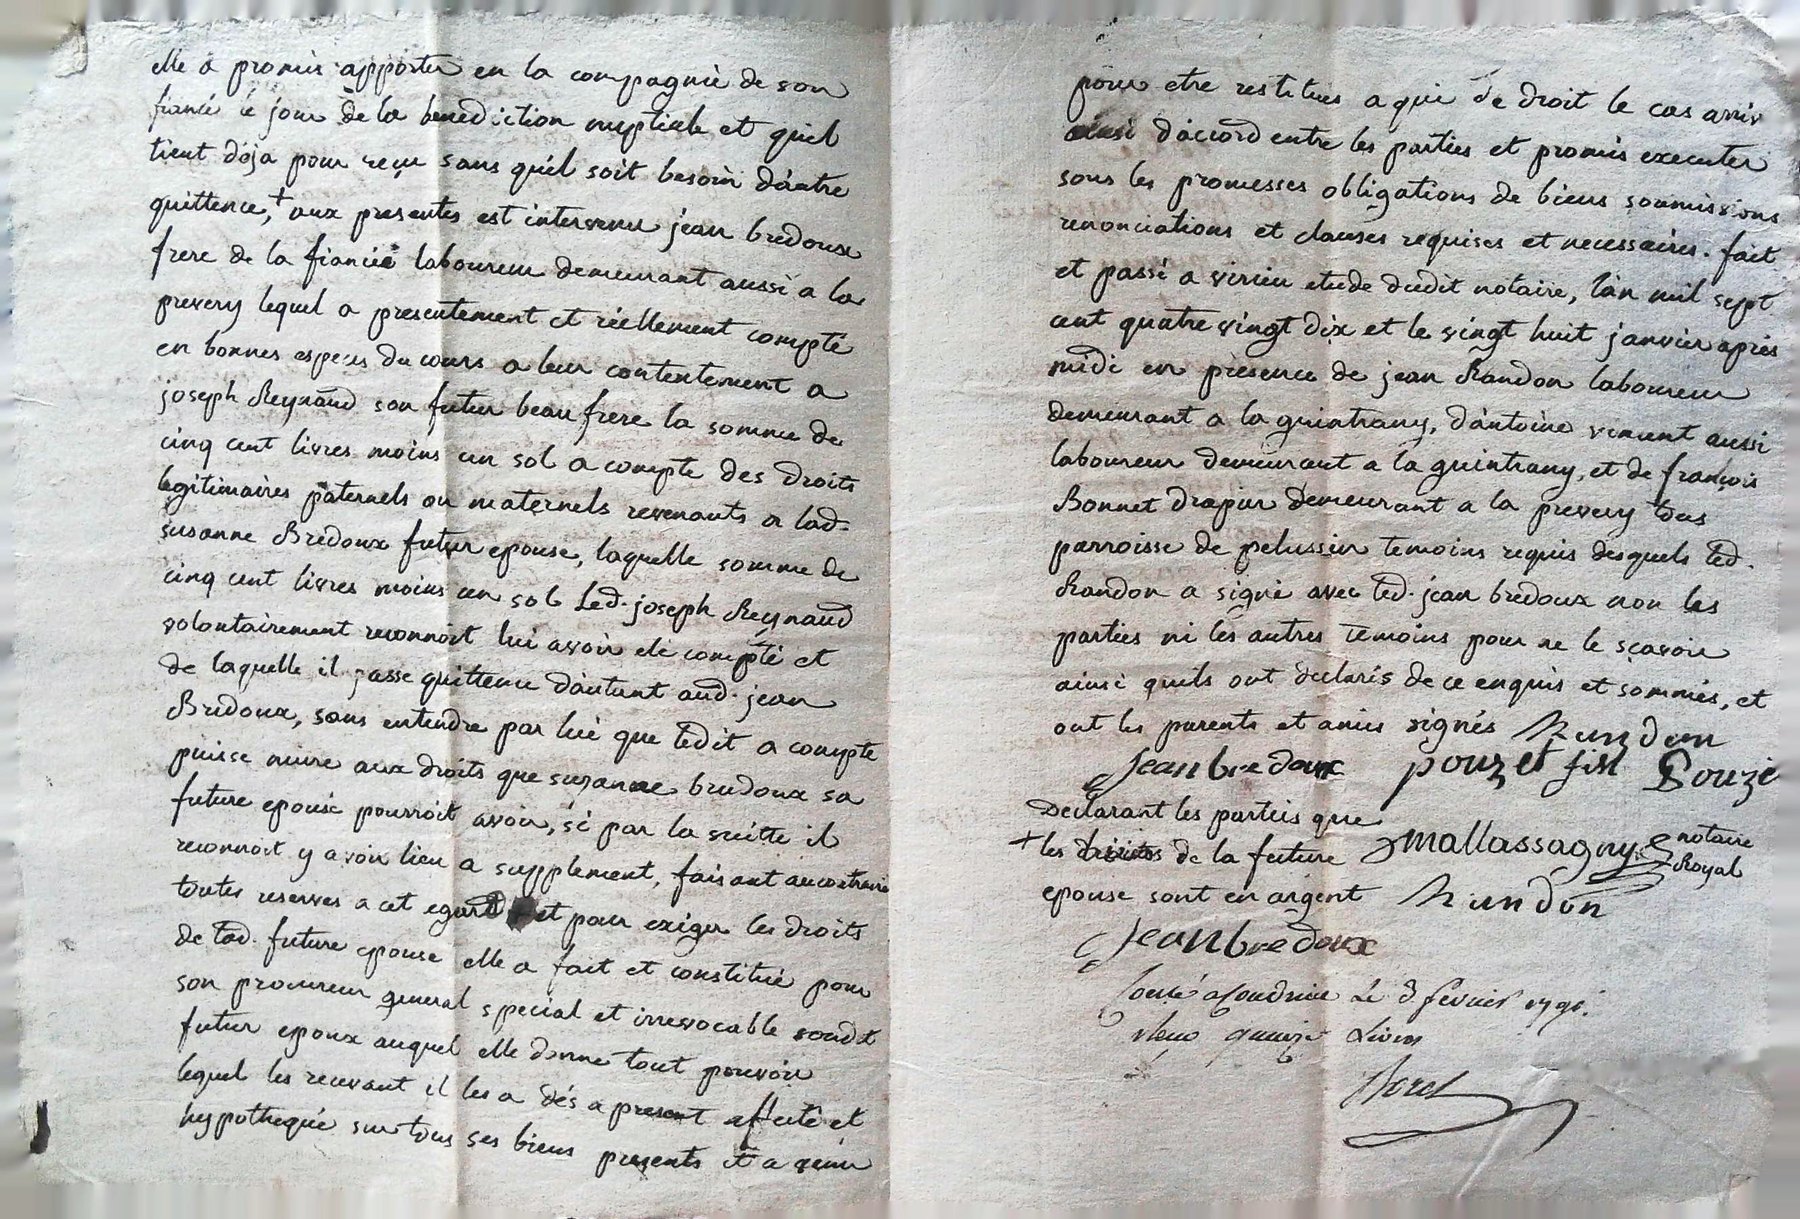 elle a promis apporter en la compagnie de son
fiancé le jour de la benediction nuptiale et quiel
tient deja pour reçu sans quél soit besoin dáutre
quittence,+ aux presentes est intervenu jean bredoux
frere de la fiancée laboureur demeurant aussi a la
prevery lequel a presentement et réellement compté
en bonnes especes du cours a leur contentement a
joseph Reynaud son futur beau frere la somme de
cinq cent livres moins un sol a compte des droits
legitimaires paternels ou maternels revenants a lad.
susanne Bredoux futur epouse, laquelle somme de
cinq cent livres moins un sol Led. joseph Reynaud
volontairement reconnoit lui avoir eté compté et
de laquelle il passe quittence dáutant aud. jean
Bredoux, sans entendre par lui que ledit a compte
puisse nuire aux droits que suzanne bredoux sa
future epouse pourroit avoir, si par la suitte il
reconnoit y avoir lieu a supplement, faisant au contraire
toutes reserves a cet egard et pour exiger les droits
de lad. future epouse elle a fait et constitué pour
son procureur general special et irrevocable sondt
futur epoux auquel elle donne tout pouvoir
lequel les recevant il les a dés a present affecté et
hypothequé sur tous ses biens presents et a venir
pour etre restitués a qui de droit le cas arriv
ainsi dáccord entre les parties et promis executer
sous les promesses obligations de biens soumissions
renonciations et clauses requises et necessaires. fait
et passé a virieu etude dudit notaire, lán mil sept
cent quatre vingt dix et le vingt huit janvier apres
midi en présence de jean Randon laboureur
demeurant a la guintrany, dántoine vincent aussi
laboureur demeurant a la guintrany, et de françois
Bonnet drapier demeurant a la prevery tous
parroisse de pelussin temoins requis desquels led.
Randon a signé avec led. jean bredoux non les
parties ni les autres temoins pour ne le sçavoir
ainsi quils ont declarés de ce enquis et sommés, et
ont les parents et amis signés Randon
Jean bredoux pouzet fisl Pouze
Declarant les parties que
+ les droits de la future Mallassagny notaire Royal
epouse sont en argent Randon
Jean bredoux
Le 3 fevrier 1790.
reçu quinze Livres
Borel